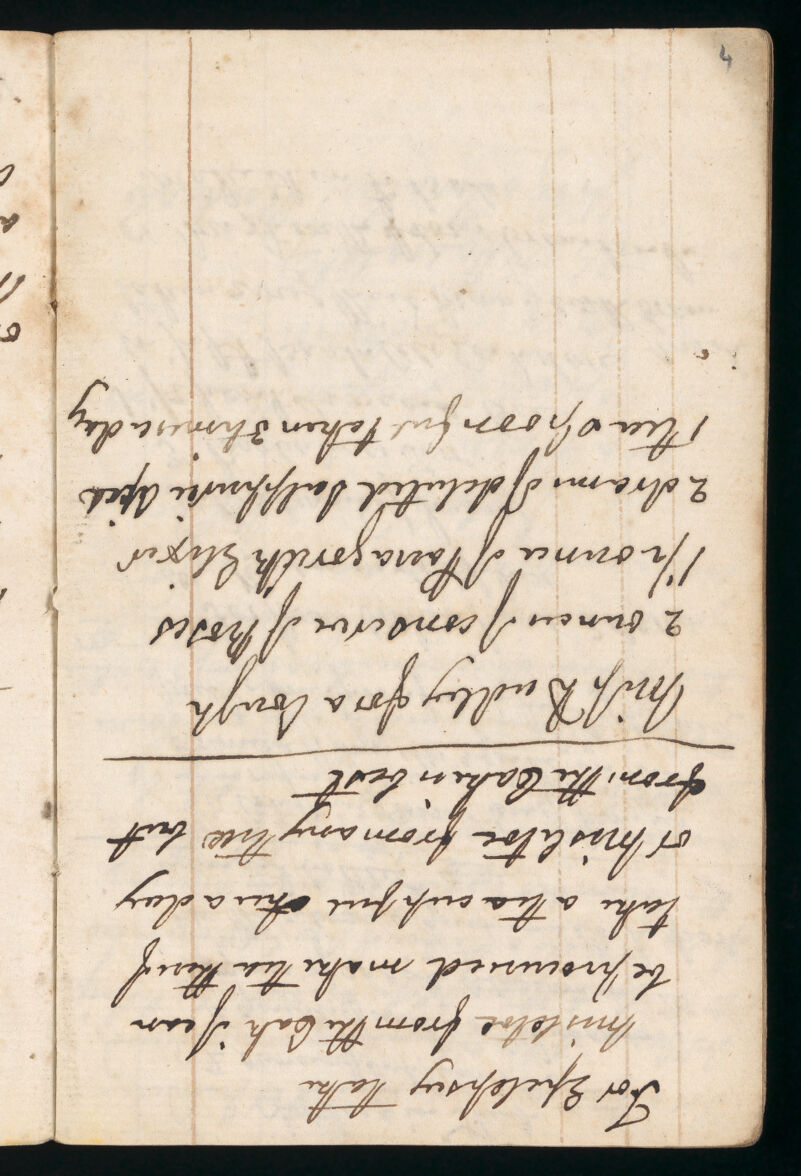 For Epilepsy take
Misletoe from the Oak if can
be procured make tea thereof
take a tea cup full thrice a day
or Misletoe from any tree but
from the Oake is best
Miss Dudley for a Cough
2 ounces of conserve of Roses
1/2 ounce of Paragorick Elixer
2 drams of deluted Sulphuric Acid
1 tea spoon full taken 3 times a day
4